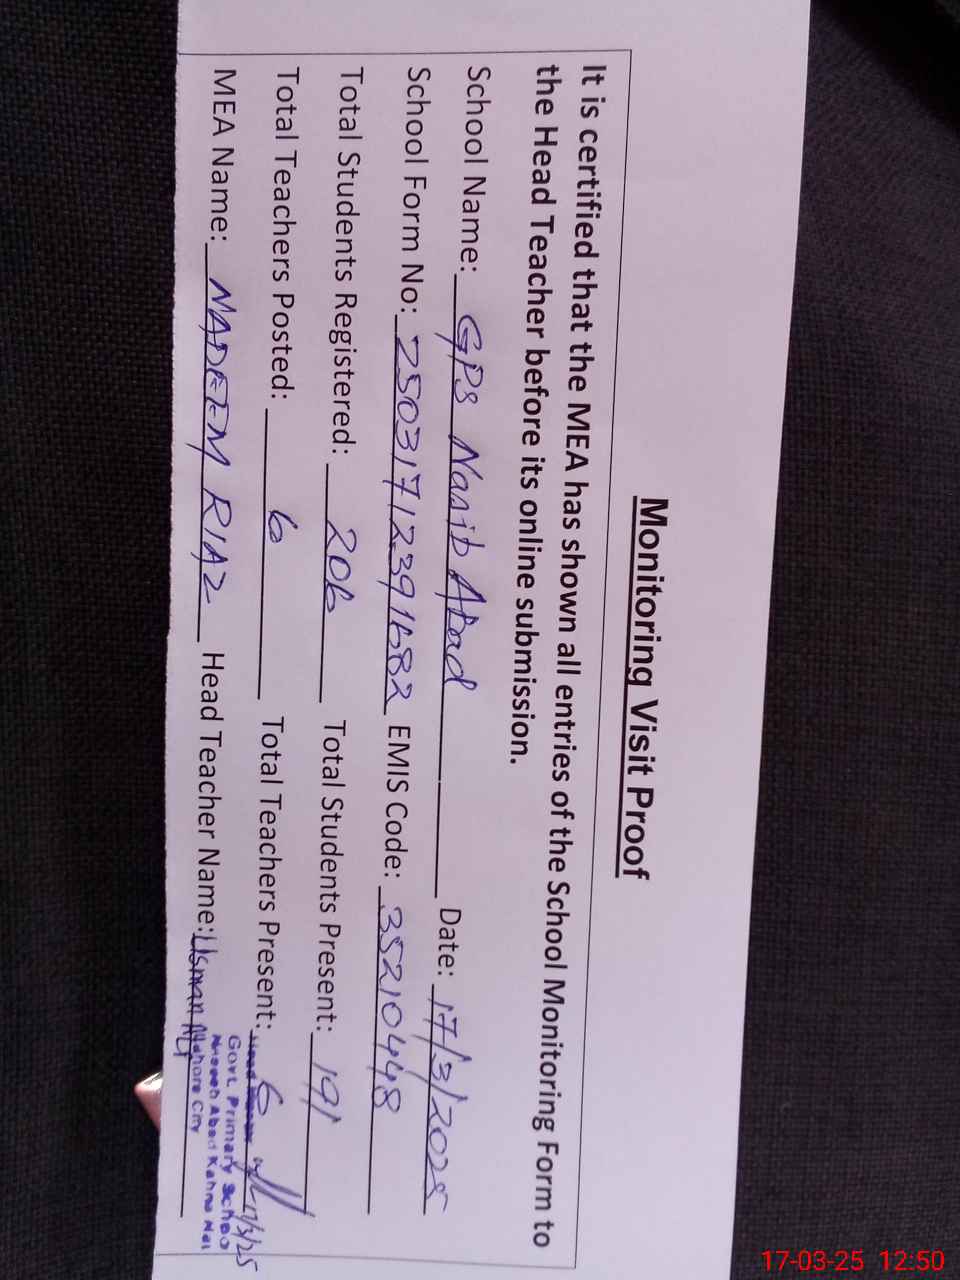 Monitoring Visit Proof
It is certified that the MEA has shown all entries of the School Monitoring Form to
the Head Teacher before its online submission.
School Name: GPS Nasib Abad Date: 17/3/2025
School Form No: 25031712391682 EMIS Code: 35210448
Total Students Registered: 206 Total Students Present: 191
Total Teachers Posted: 6 Total Teachers Present: 6
MEA Name: NADEEM RIAZ Head Teacher Name: Usman Ali
17/3/25
Govt. Primary School
Naseeb Abad Kahna Nau
Lahore City
17-03-25 12:50